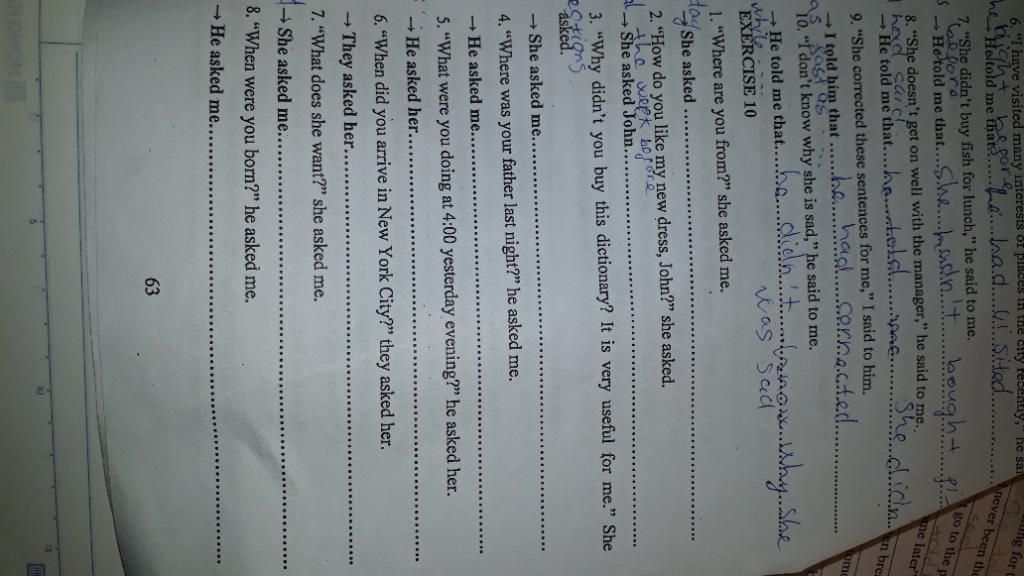 6. "I visited many interests of places in the city recently," he
→ He told me that....he had visited
7. "She didn't buy fish for lunch," he said to me.
→ He told me that....She hadn't bought
8. "She doesn't get on well with the manager," he said to me.
→ He told me that....he told me She didn
9. "She corrected these sentences for me," I said to him.
→ I told him that ......he had connected
10. "I don't know why she is sad," he said to me.
→ He told me that....he didn't know why she
was sad
EXERCISE 10
1. "Where are you from?" she asked me.
She asked
2. "How do you like my new dress, John?" she asked.
the week before
→ She asked John
3. "Why didn't you buy this dictionary? It is very useful for me." She
asked.
→ She asked me
4. "Where was your father last night?" he asked me.
→ He asked me
5. "What were you doing at 4:00 yesterday evening?" he asked her.
→ He asked her
6. "When did you arrive in New York City?" they asked her.
→ They asked her
7. "What does she want?" she asked me.
→ She asked me
8. "When were you born?" he asked me.
→ He asked me
63